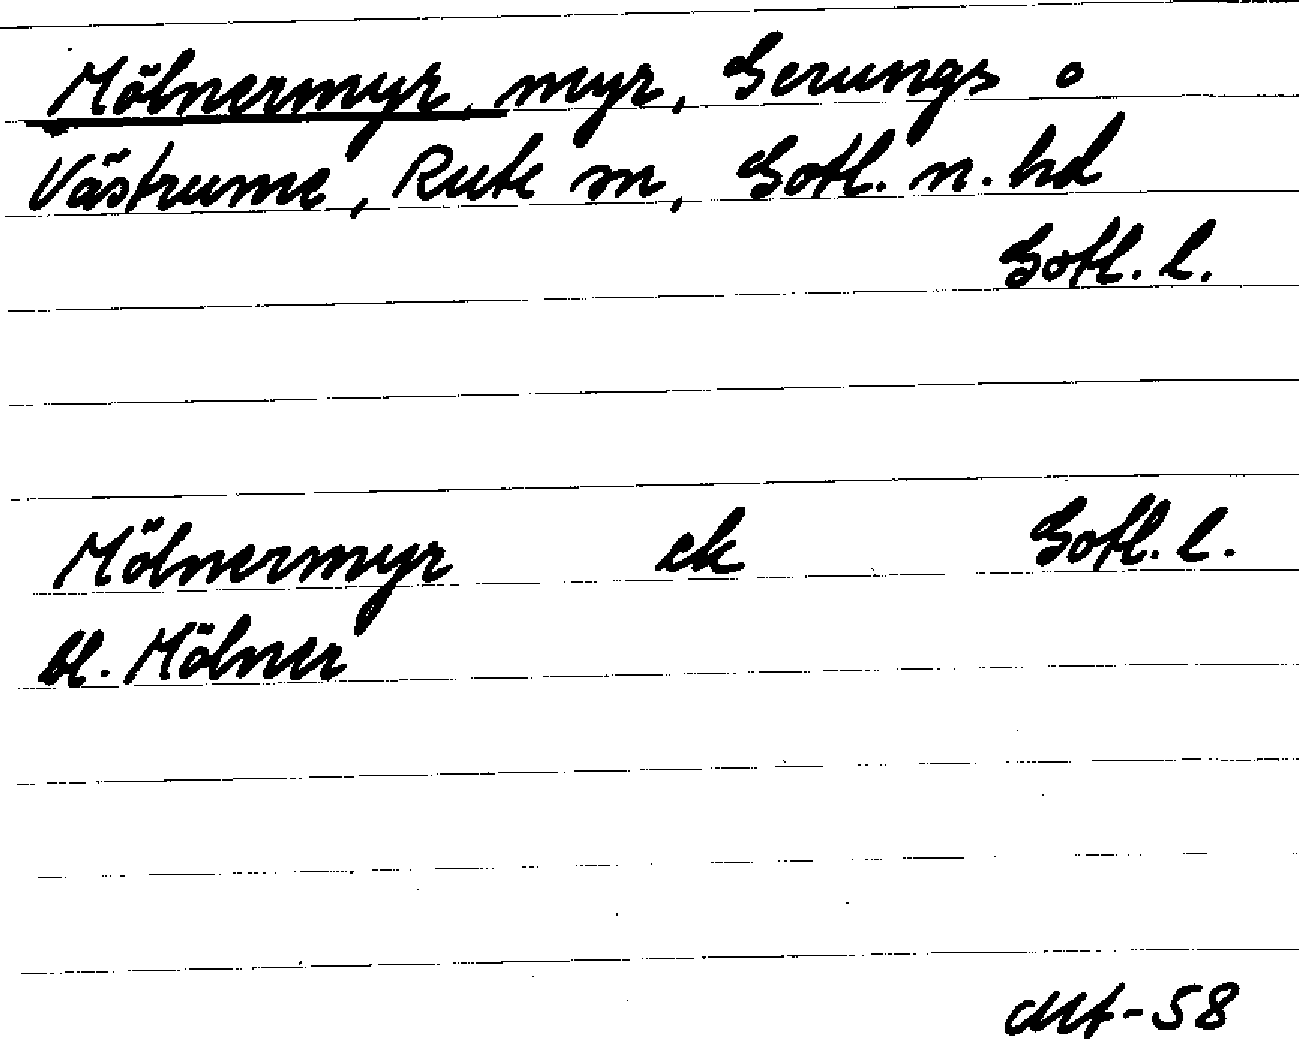 Mölnermyr, myr, Gerungs o
Västrume, Rute sn, Gotl. n. hd
Gotl. l.
Mölnermyr ek Gotl. l.
bl. Mölner
-58